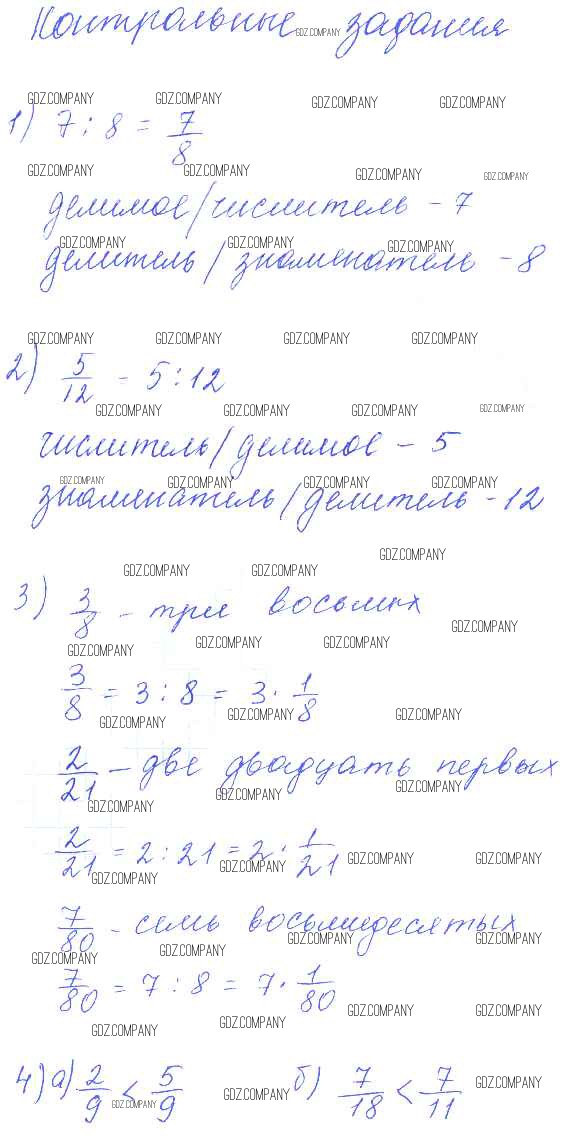 Контрольные задания
1) 7 : 8 = 7/8
делимое/числитель - 7
делитель/знаменатель - 8
2) 5/12 = 5 : 12
числитель/делимое - 5
знаменатель/делитель - 12
3) 3/8 - три восьмых
3/8 = 3 : 8 = 3 · 1/8
2/21 - две двадцать первых
2/21 = 2 : 21 = 2 · 1/21
7/80 - семь восьмидесятых
7/80 = 7 : 8 = 7 · 1/80
4) а) 2/9 < 5/9 б) 7/18 < 7/11
GDZ.COMPANY